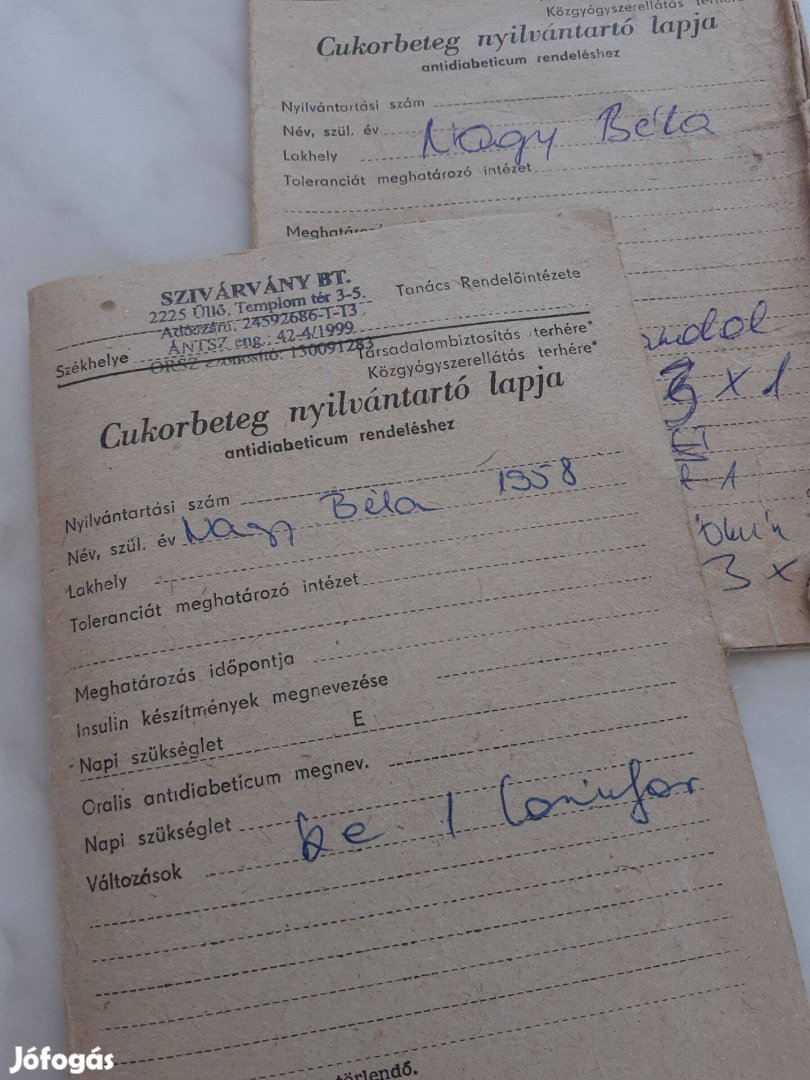 Közgyógyszerellátás terhére*
Cukorbeteg nyilvántartó lapja
antidiabeticum rendeléshez
Nyilvántartási szám
Név, szül. év Nagy Béla
Lakhely
Toleranciát meghatározó intézet
3 x 1
3 x
SZIVÁRVÁNY BT.
2225 Üllő, Templom tér 3-5.
Adószám: 24592686-1-13
ÁNTSZ eng.: 42-4/1999
ORSZ azonosító: 130091283
Tanács Rendelőintézete
Székhelye
Társadalombiztosítás terhére*
Közgyógyszerellátás terhére*
Cukorbeteg nyilvántartó lapja
antidiabeticum rendeléshez
Nyilvántartási szám
Név, szül. év Nagy Béla 1958
Lakhely
Toleranciát meghatározó intézet
Meghatározás időpontja
Insulin készítmények megnevezése
Napi szükséglet E
Oralis antidiabeticum megnev.
Napi szükséglet
Változások
törlendő.
Jófogás